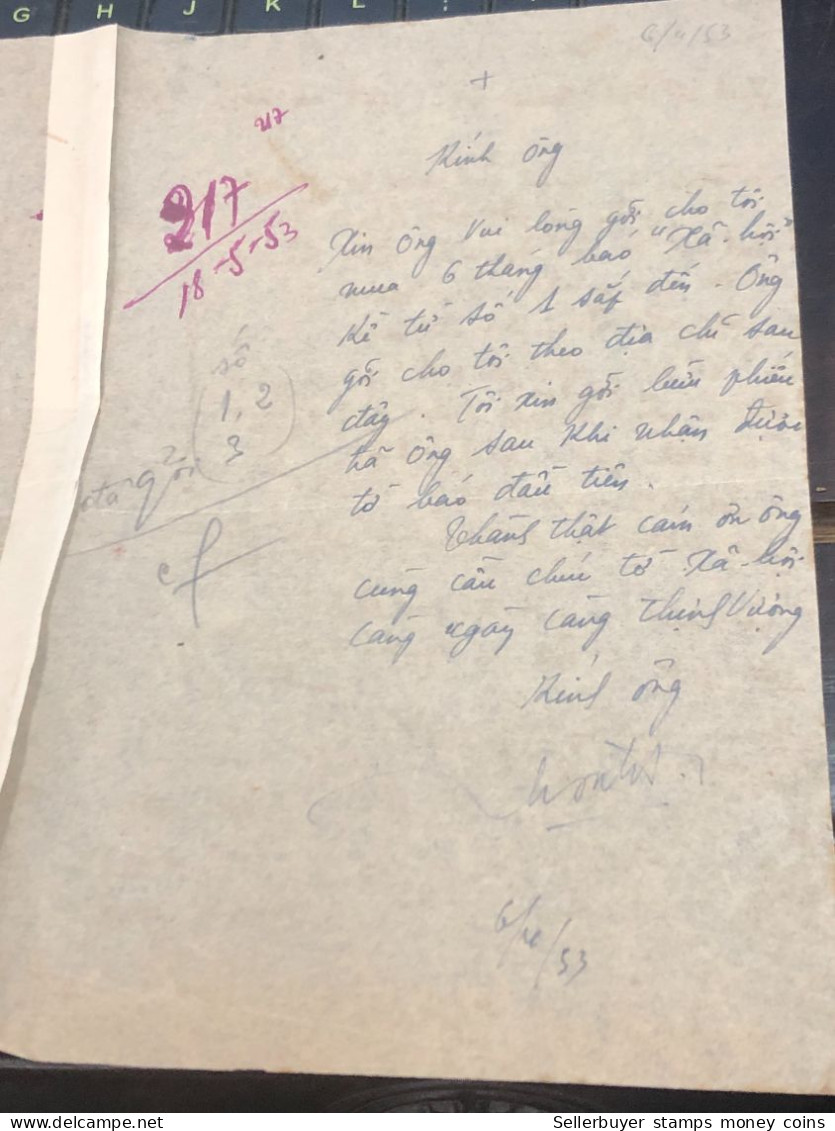 G H J K L
6/4/53
+
217
Kính ông
217
18-5-53
Xin ông vui lòng gởi cho tôi
mua 6 tháng báo "Xã-hội"
kể từ số 1 sắp đến. Ông
gởi cho tôi theo địa chỉ sau
đây. Tôi xin gởi bưu phiếu
trả ông sau khi nhận được
tờ báo đầu tiên.
số
1, 2
3
đã gởi
Thành thật cám ơn ông
cùng cầu chúc tờ Xã-hội
càng ngày càng thịnh vượng
Kính ông
53
Sellerbuyer stamps money coins